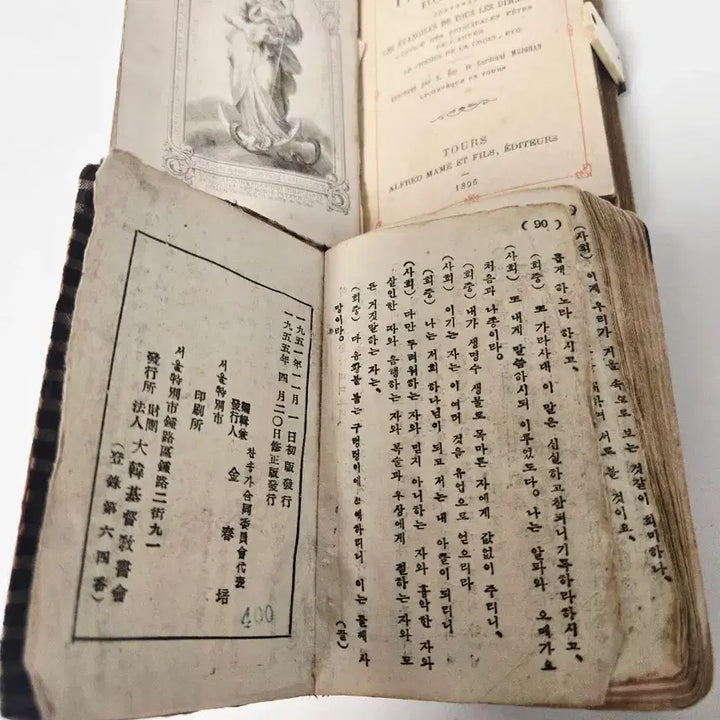 LES ÉVANGILES DE TOUS LES
DES PRINCIPALES FÊTES
DE L'ANNÉE
LE CHEMIN DE LA CROIX, ETC.
par S. Ém. le Cardinal MEIGNAN
ARCHEVÊQUE DE TOURS
TOURS
ALFRED MAME ET FILS, ÉDITEURS
1895
(사회) 이제 우리가 거울 속으로 보는 것같이 희미하나,
서로 볼 것이요,
( 90 )
롭게 하노라 하시고,
(회중) 또 가라사대 이 말은 신실하고 참되니 기록하라 하시고,
(사회) 또 내게 말씀하시되 이루었도다, 나는 알파와 오메가요
처음과 나중이라,
(회중) 내가 생명수 샘물로 목마른 자에게 값없이 주리니,
(사회) 이기는 자는 이 여러 것을 유업으로 얻으리라
(회중) 나는 저희 하나님이 되고 저는 내 아들이 되리니,
(사회) 다만 두려워하는 자와 믿지 아니하는 자와 흉악한 자와
살인한 자와 음행하는 자와 복술과 우상에게 절하는 자와 모
든 거짓말하는 자는,
(회중) 다 유황불 붙는 구렁텅이에 참예하리니 이는 둘째 사
망이라,
(끝)
一九五一年一一月 一 日初版發行
一九五五年 四月二〇日修正版發行
編輯兼
發行人
찬송가合同委員會代表
金 春 培
서울特別市
印刷所
서울特別市鍾路區鍾路二街九一
發行所 財團
法人 大韓基督敎書會
(登錄第六四番)
400